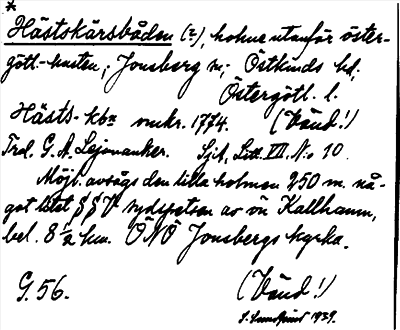 *
Hästskärsbåden (2), holme utanför öster-
götl.-kusten; Jonsberg sn; Östkinds hd,
Östergötl. l.
Hästs- kbn sjökr. 1774. (Vänd!)
Trol. G. A. Lejonanker. Sjk. Litt. VII. No 10
Möjl. avsågs den lilla holmen 250 m. nå-
got litet SSV sydspetsen av ön Kallhamn,
bel. 8 1/2 km. ÖNÖ Jonsbergs kyrka.
G. 56. (Vänd!)
1939.